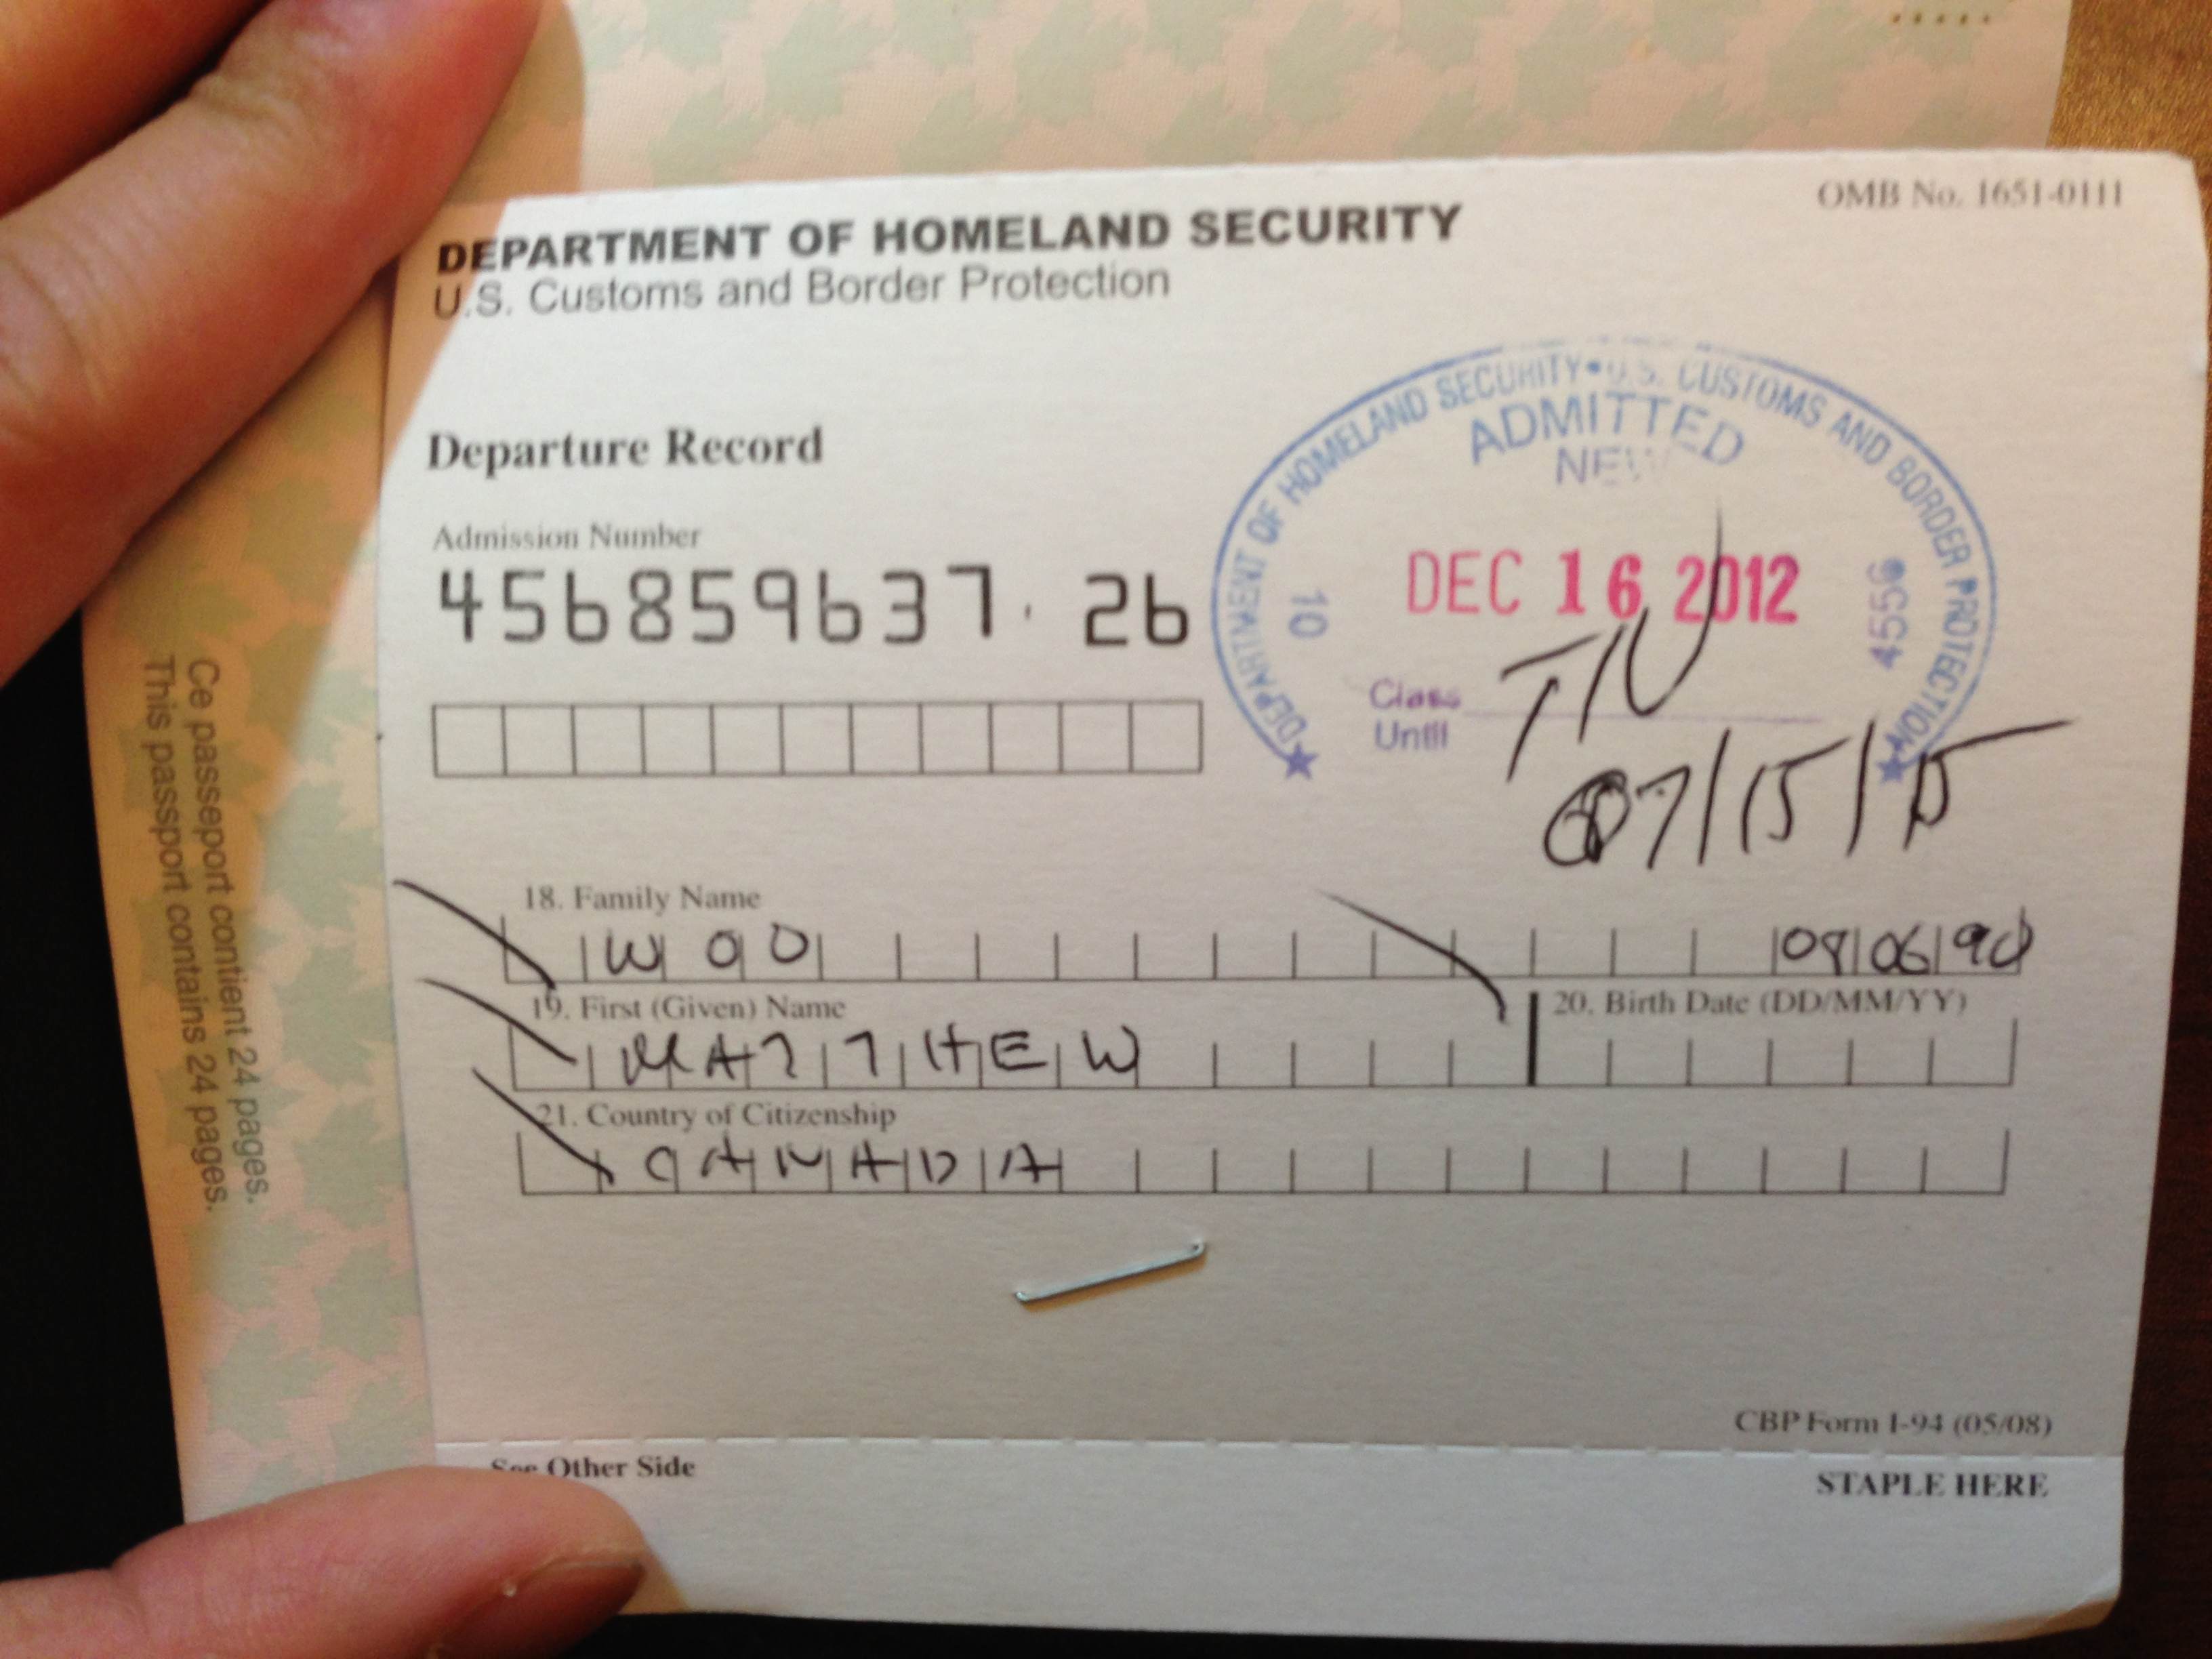 This passport contains 24 pages.
Ce passeport contient 24 pages.
DEPARTMENT OF HOMELAND SECURITY
U.S. Customs and Border Protection
OMB No. 1651-0111
Departure Record
Admission Number
456859637 26
DEPARTMENT OF HOMELAND SECURITY • U.S. CUSTOMS AND BORDER PROTECTION
ADMITTED
NEW
10
DEC 16 2012
4556
Class
Until
07/15/15
18. Family Name
WOO
19. First (Given) Name
MATTHEW
20. Birth Date (DD/MM/YY)
21. Country of Citizenship
CANADA
See Other Side
CBP Form I-94 (05/08)
STAPLE HERE